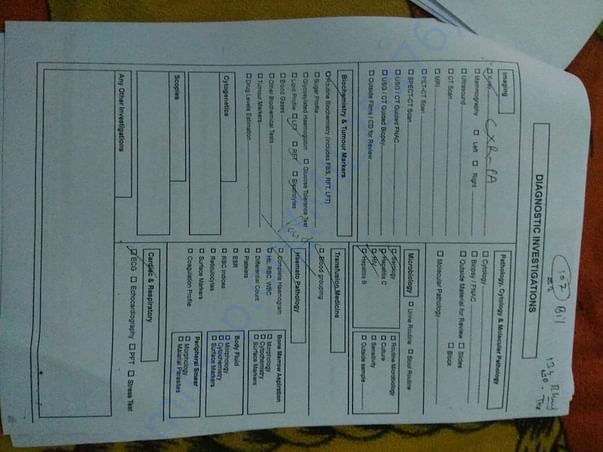 DIAGNOSTIC INVESTIGATIONS
102 Bill
Imaging
X-ray CXR-PA
Mammography Left Right
Ultrasound
CT Scan
MRI
PET-CT Scan
SPECT-CT Scan
USG / CT Guided FNAC
USG / CT Guided Biopsy
Outside Films / CD for Review
Biochemistry & Tumour Markers
Routine Biochemistry (includes FBS, RFT, LFT)
Sugar Profile
Glycosylated Haemoglobin Glucose Tolerance Test
Lipid Profile LFT RFT Electrolytes
Blood Gases
Other Biochemical Tests
Tumour Markers
Drug Levels Estimation
Cytogenetics
Scopies
Any Other Investigations
Pathology, Cytology & Molecular Pathology
Cytology
Biopsy / FNAC
Outside Material for Review Slides
Block
Molecular Pathology
Microbiology Urine Routine Stool Routine
Serology
Hepatitis C
HIV
Hepatitis B
Routine Microbiology
Culture
Sensitivity
Outside sample
Transfusion Medicine
Blood grouping
Haemato Pathology
Complete Haemogram
Hb, RBC, WBC
Differential Count
Platelets
ESR
RBC Indices
Reticulocytes
Surface Markers
Coagulation Profile
Bone Marrow Aspiration
Morphology
Cytochemistry
Surface Markers
Body Fluid
Morphology
Cytochemistry
Surface Markers
Peripheral Smear
Morphology
Malaria Parasites
Cardiac & Respiratory
ECG Echocardiography PFT Stress Test